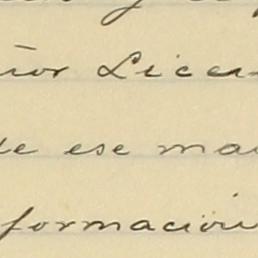 ñor Licen
de ese ma
formación